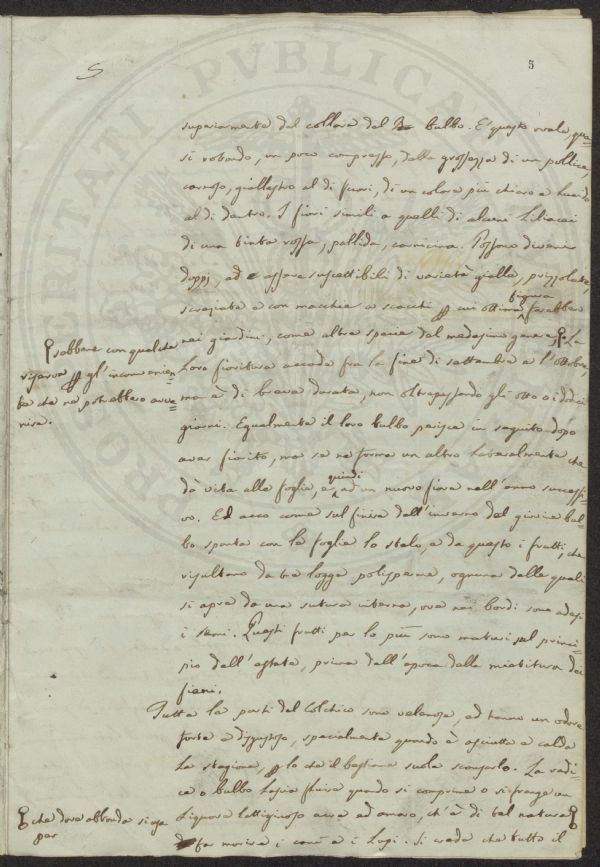 5
5
superiormente dal collare del bulbo. E' questo ovale, qua=
si rotondo, un poco compresso, della grossezza di un pollice,
carnoso, giallastro al di fuori, di un colore più chiaro e lucido
al di dentro. I fiori simili a quelli di alcune Liliacei
di una tinta rossa, pallida, carnicina. Possono divenir
doppj, ed assere suscettibili di varietà gialle, prizzolate,
screziate e con macchie a scacchi in ottima figura farebbero
nei giardini, come altre specie del medesimo genere. La
sebbene con qualche
riserva gl' inconvenien=
te che ne potrebbero avve=
nire.
loro fioritura accade fra la fine di settembre e l'ottobre,
ma è di breve durata, non oltrepassando gli otto o i dodici
giorni. Egualmente il loro bulbo perisce in seguito dopo
aver fiorito, ma se ne forma un altro lateralmente che
dà vita alle foglie, e quindi ad un nuovo fiore nell'anno successi=
vo. Ed ecco come sul finire dell'inverno dal giovine bul=
bo spunta con le foglie lo stelo, e da questo i frutti, che
risultano da tre logge polisperme, ognuna delle quali
si apre da una sutura interna, ove nei bordi sono adesi
i semi. Questi frutti per lo più sono maturi sul princi=
pio dell'estate, prima dell'epoca della mietitura dei
fieni.
Tutte le parti del Colchico sono velenose, ed hanno un odore
forte e disgustoso, specialmente quando è asciutta e calda
la stagione, lo che il bestiame suole scansarlo. La radi=
ce o bulbo lascia fluire quando si comprime o si frange un
liquore lattiginoso acre ed amaro, ch'è di tal natura
che dove abbonda si sa
per
far morire i cani e i Lupi. Si crede che tutto il